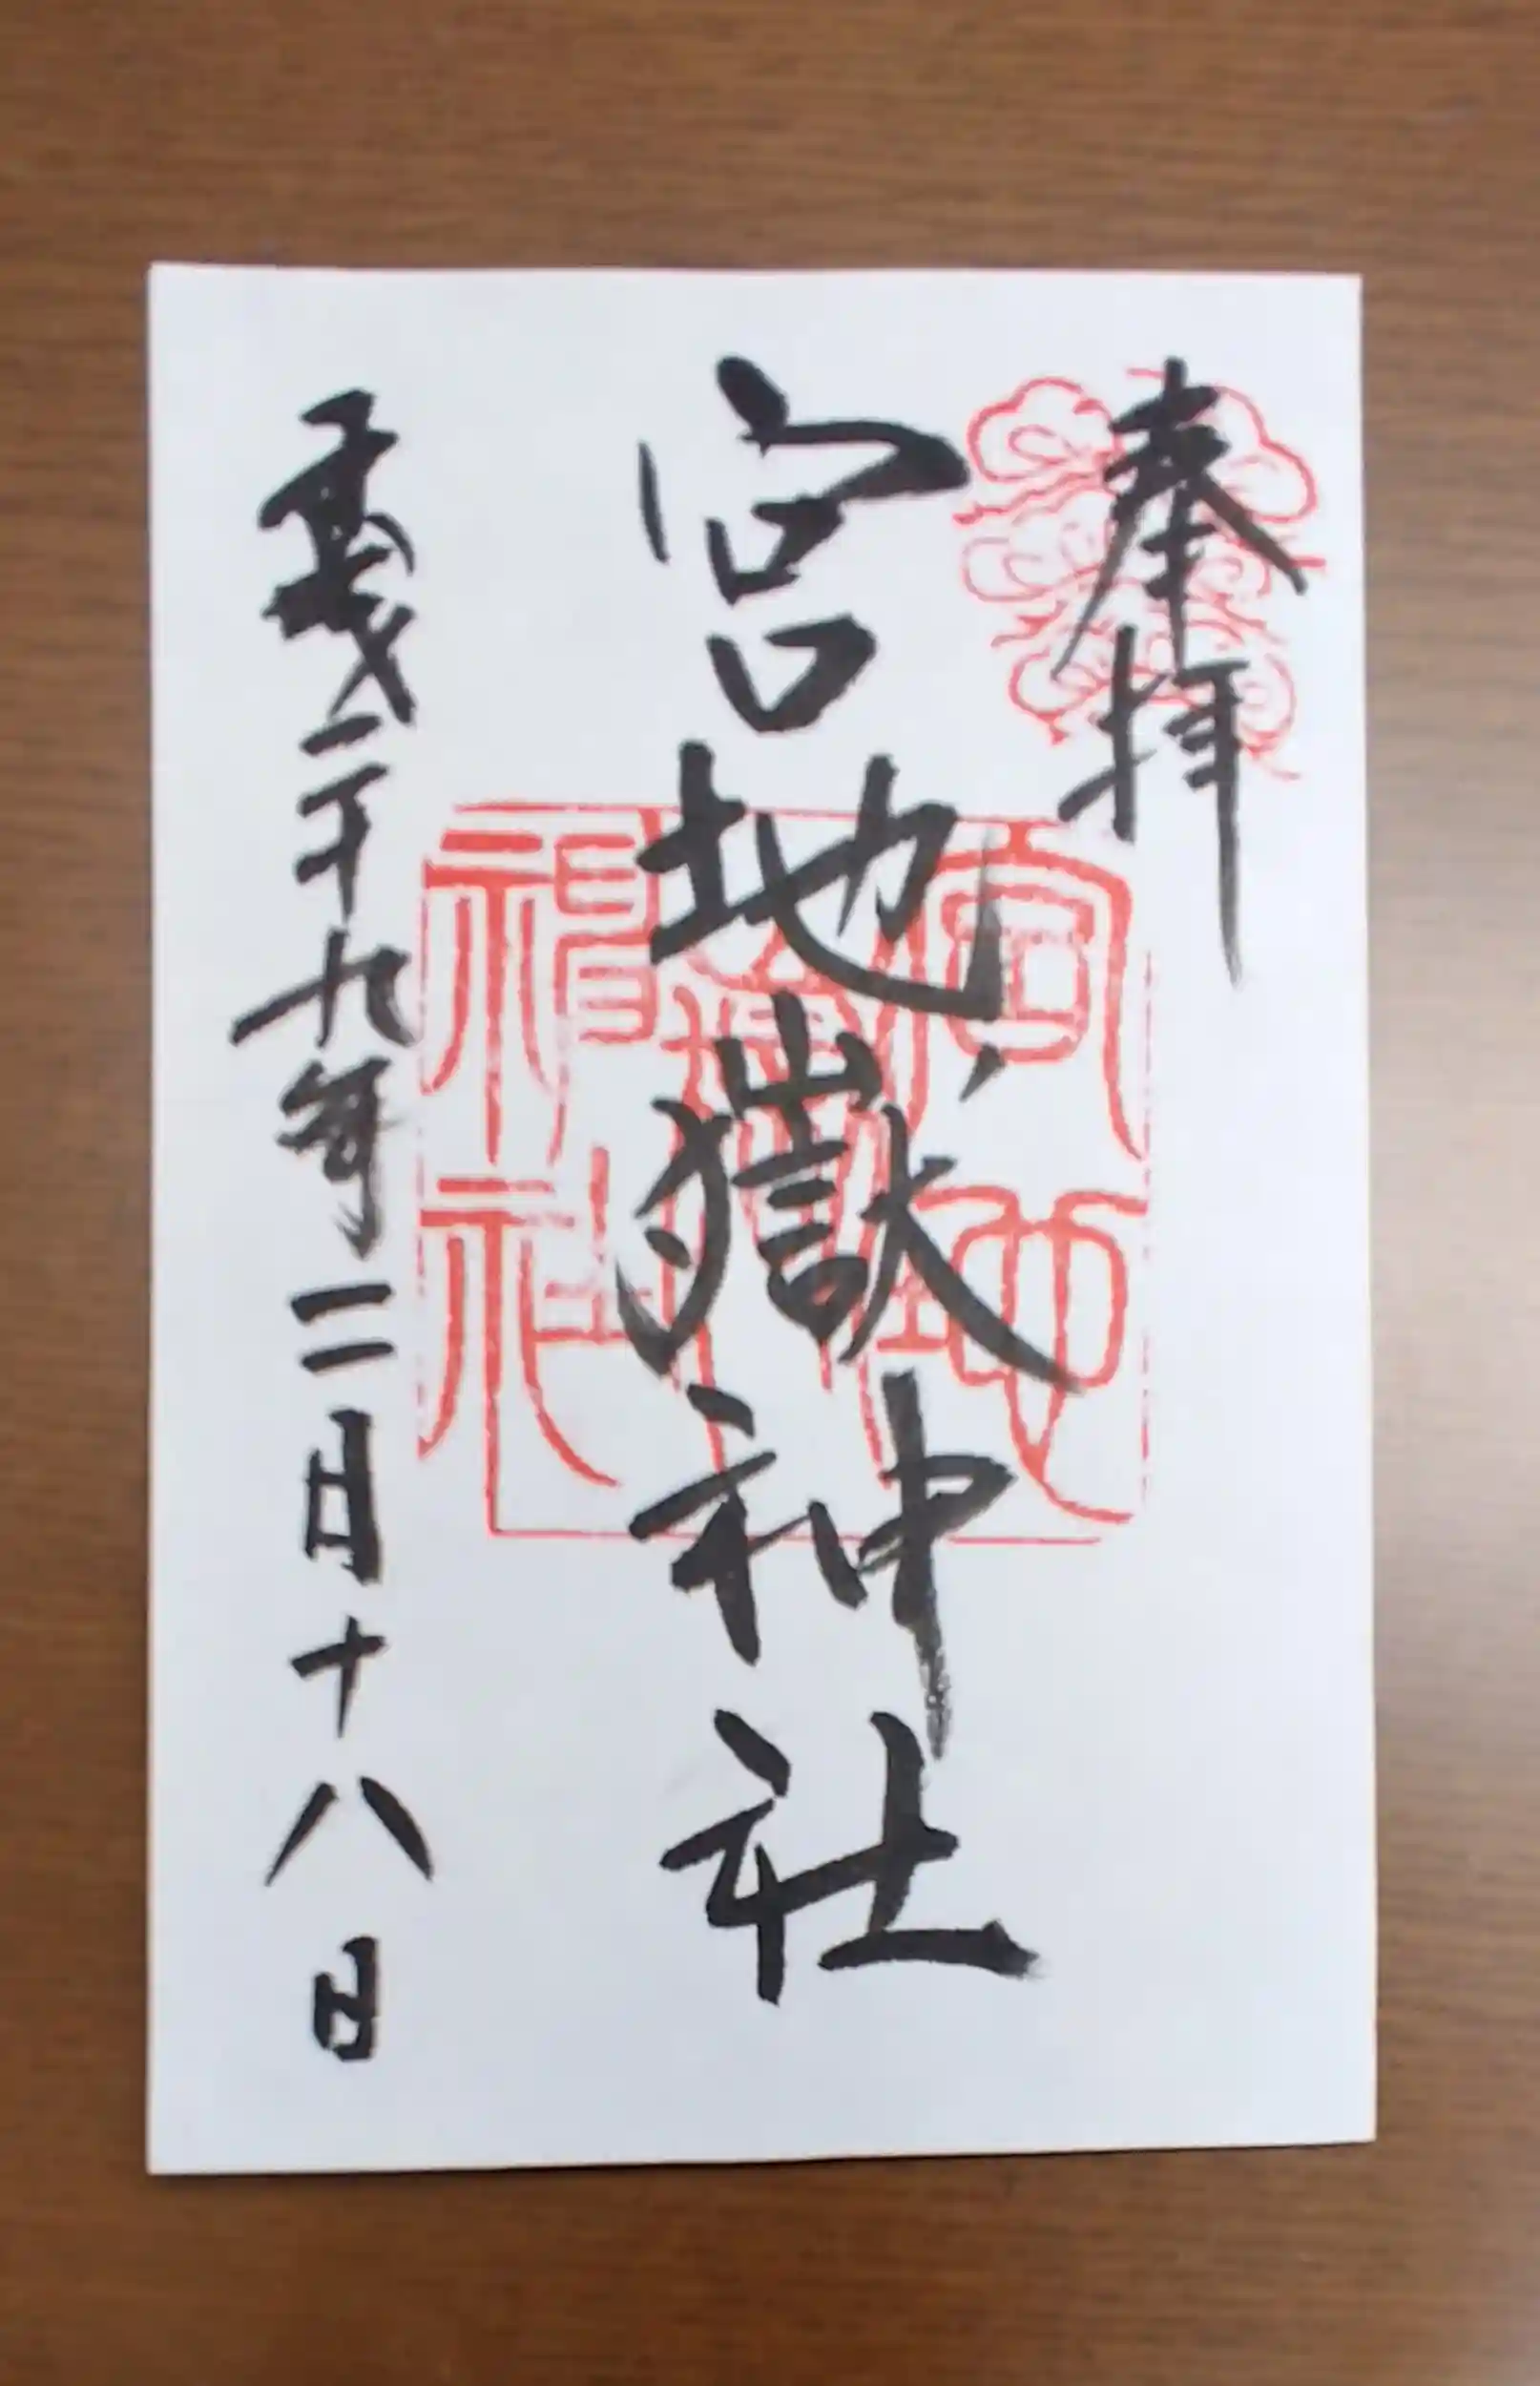 奉拝
宮地嶽神社
平成二十九年二月十八日
宮地嶽神社